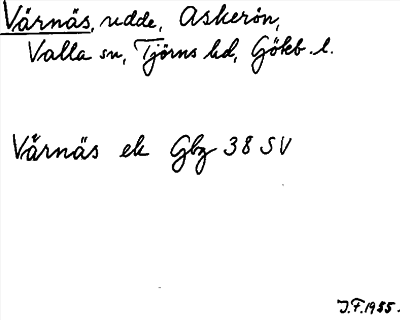 Värnäs, udde, Askerön,
Valla sn, Tjörns hd, Gökb. l.
Vårnäs ek Gbg 38 SV
J.F. 1955.